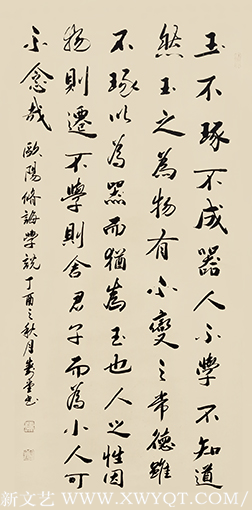 玉不琢不成器人不學不知道
然玉之為物有不變之常德雖
不琢以為器而猶為玉也人之性因
物則遷不學則舍君子而為小人可
不念哉 歐陽脩誨學說 丁酉之秋月
新文艺/WWW.XWYQT.COM/